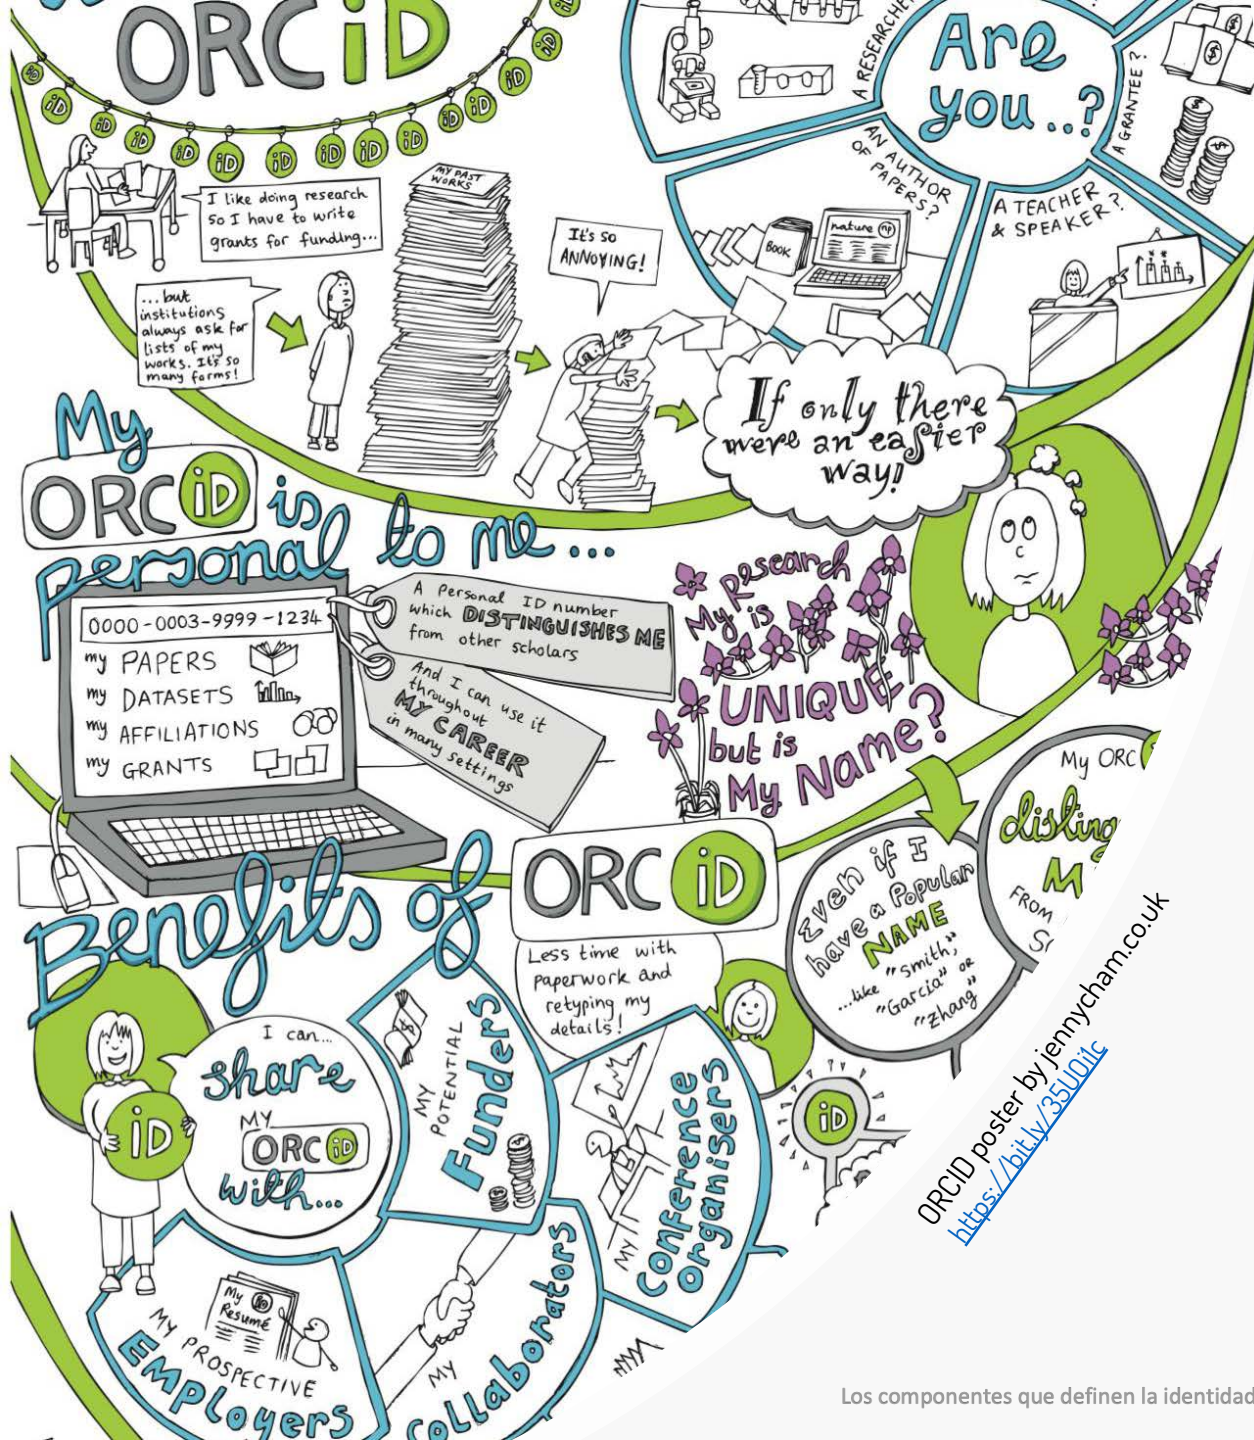 ORCiD
iD
iD
iD
iD
iD
iD
iD
iD
iD
iD
iD
iD
iD
iD
I like doing research
so I have to write
grants for funding...
MY PAST
WORKS
It's so
ANNOYING!
...but
institutions
always ask for
lists of my
works. It's so
many forms!
Are
you...?
A RESEARCHER
A GRANTEE?
AN AUTHOR
OF PAPERS?
BOOK
nature
A TEACHER
& SPEAKER?
If only there
were an easier
way!
My
ORCiD is
personal to me...
0000-0003-9999-1234
my PAPERS
my DATASETS
my AFFILIATIONS
my GRANTS
A Personal ID number
which DISTINGUISHES ME
from other scholars
And I can use it
throughout
MY CAREER
in many settings
My Research
is
UNIQUE
but is
My Name?
My ORC
disting
M
FROM
Even if I
have a Popular
NAME
...like "Smith,"
"Garcia" or
"Zhang"
iD
Benefits of
ORCiD
Less time with
paperwork and
retyping my
details!
iD
I can...
share
MY
ORCiD
with...
MY
POTENTIAL
Funders
MY
Conference
organisers
MY
Collaborators
My
Resumé
MY PROSPECTIVE
EMPloyers
ORCID poster by jennycham.co.uk
https://bit.ly/35U0i1c
Los componentes que definen la identidad